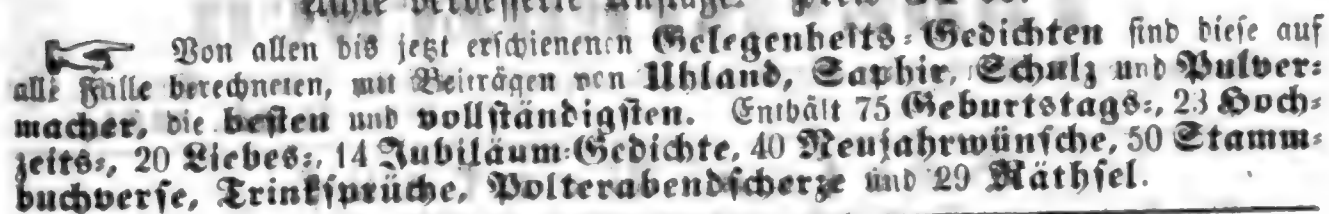 verbesserte Auflage. Preis
☞ Von allen bis jetzt erschienenen Gelegenheits-Gedichten sind diese auf
alle Fälle berechneten, mit Beiträgen von Uhland, Saphir, Schulz und Pulver-
macher, die besten und vollständigsten. Enthält 75 Geburtstags-, 23 Hoch-
zeits-, 20 Liebes-, 14 Jubiläum-Gedichte, 40 Neujahrwünsche, 50 Stamm-
buchverse, Trinksprüche, Polterabendscherze und 29 Räthsel.